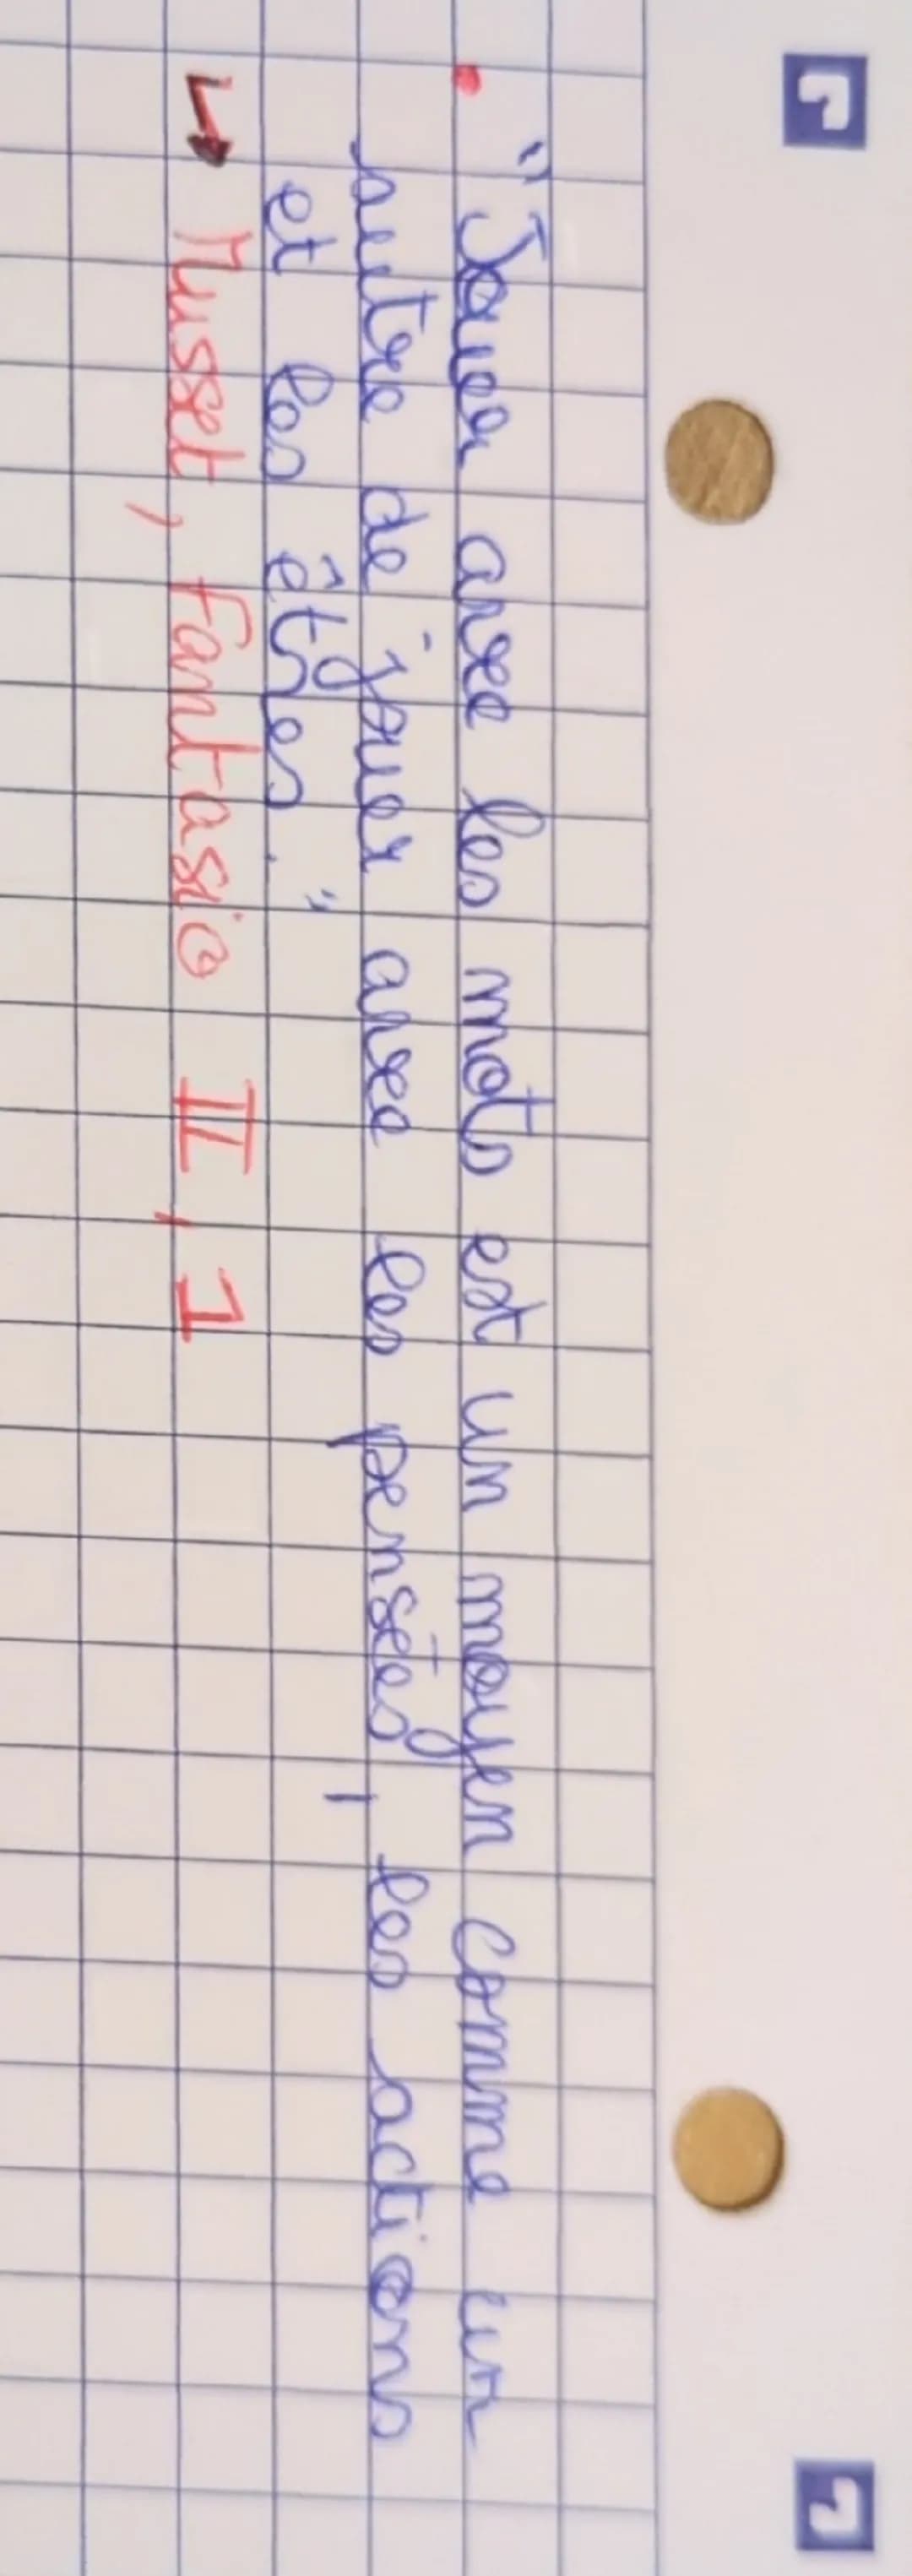 • "Jouer avec les mots est un moyen comme un
autre de jouer avec les pensées, les actions
et les êtres."
↳ Musset, Fantasio II, 1